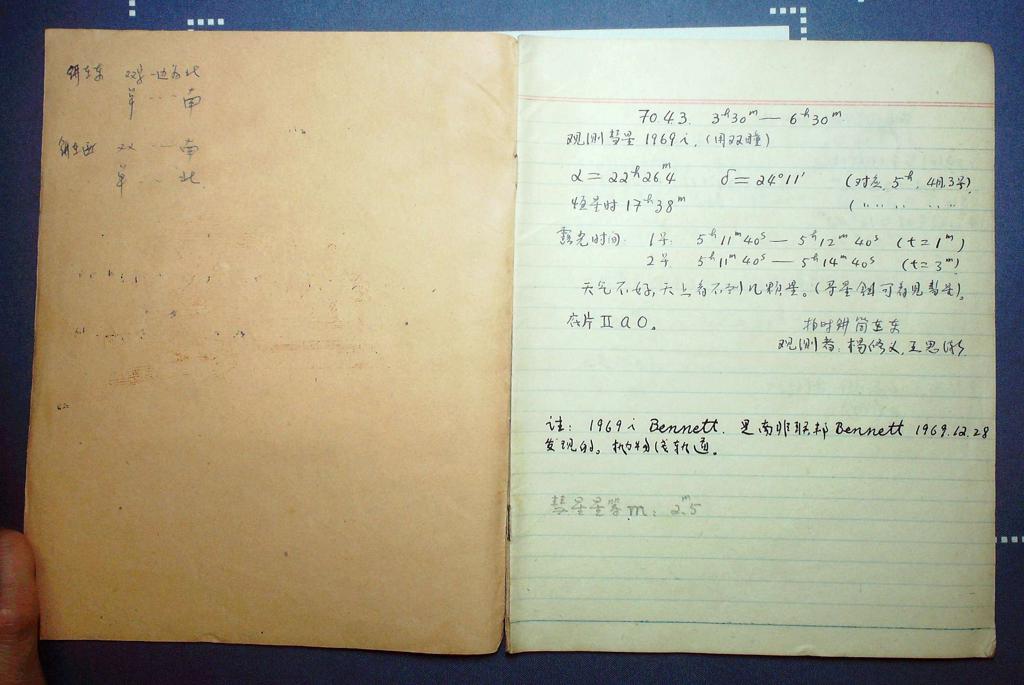 镜在东 双号一边为北
单 ‥ ‥ 南
镜在西 双 ‥ 南
单 ‥ 北
70.4.3. 3ʰ30ᵐ — 6ʰ30ᵐ
观测彗星 1969 i. (用双瞳)
α = 22ʰ26ᵐ.4 δ = 24°11′ (对应 5ʰ, 4月3号).
恒星时 17ʰ38ᵐ ( 〃 〃 〃 〃
露光时间: 1号. 5ʰ11ᵐ40ˢ — 5ʰ12ᵐ40ˢ (t = 1ᵐ)
2号 5ʰ11ᵐ40ˢ — 5ʰ14ᵐ40ˢ (t = 3ᵐ)
天气不好, 天上看不到几颗星。(寻星镜可看见彗星)。
底片 II a O。 拍时镜筒在东
观测者: 杨修义, 王思潮
注: 1969 i Bennett. 是南非联邦 Bennett 1969.12.28
发现的。抛物线轨道。
彗星星等 m: 2ᵐ.5